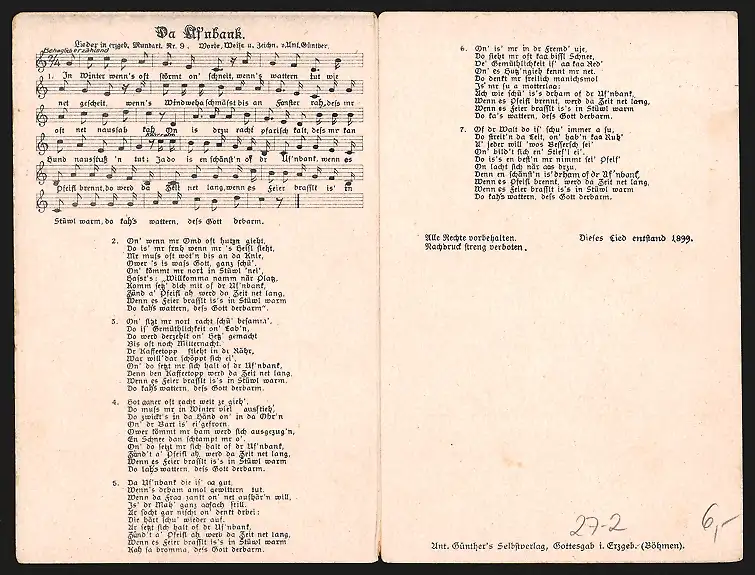 Da Uf'nbank.
Lieder in erzgeb. Mundart. Nr. 9. Worte, Weise u. Zeichn. v. Ant. Günther.
Behaglich erzählend
1. In Winter wenn's oft störmt on' schneit, wenn's wattern tut wie
net gescheit, wenn's Windweha schmässt bis an Fanster rah, dess mr
oft net naussah kah. On is drzu racht pfarisch kalt, dess mr kan
Hund nausstuß'n tut; Ja do is en schönst'n of dr Uf'nbank, wenn es
Pfeifl brennt, do werd da Zeit net lang, wenn es Feier brasslt is' in
Stüwl warm, do kah's wattern, dess Gott derbarm.
2. On' wenn mr Omd oft hutzn gieht,
Do is' mr frah wenn mr 's Beisl sieht,
Mr muss oft wot'n bis an da Knie,
Ower 's is wass Gott, ganz schü'.
On' kömmt mr nort in Stüwl 'nei',
Hasst's: „Willkomma namm när Platz,
Komm setz' dich mit of dr Uf'nbank,
Zünd a' Pfeifl ah werd da Zeit net lang,
Wenn es Feier brasslt is's in Stüwl warm
Do kah's wattern, dess Gott derbarm".
3. On' sitzt mr nort racht schü' besamm',
Do is' Gemüthlichkeit on' Lab'n,
Do werd derzehlt on' Hetz' gemacht
Bis oft noch Mitternacht.
Dr Kaffeetopp stieht in dr Röhr,
War will' dar schöppt sich ei',
On' do setzt mr sich halt of dr Uf'nbank,
Denn ben Kaffeetopp werd da Zeit net lang,
Wenn es Feier brasslt is's in Stüwl warm
Do kah's wattern, dess Gott derbarm.
4. Hot aaner oft racht weit ze gieh',
Do muss mr in Winter viel ausstieh',
Do zwickt's in da Händ on' in da Ohr'n
On' dr Bart is' ei'gefrorn.
Ower kömmt mr ham werd sich ausgezug'n,
En Schnee dan schtampt mr o'.
On' do setzt mr sich halt of dr Uf'nbank,
Zünd't a' Pfeifl ah, werd da Zeit net lang,
Wenn es Feier brasslt is's in Stüwl warm
Do kah's wattern, dess Gott derbarm.
5. Da Uf'nbank die is' aa gut,
Wenn's drham amol gewittern tut.
Wenn da Fraa zankt on' net aufhär'n will,
Is' dr Mah' ganz aafach still.
Ar socht gar nischt on' denkt drbei:
Die härt schu' wieder auf.
Ar setzt sich halt of dr Uf'nbank,
Zünd't a' Pfeifl ah werd da Zeit net lang,
Wenn es Feier brasslt is's in Stüwl warm
Kah sa bromma, dess Gott derbarm.
6. On' is' mr in dr Fremd' uje,
Do sieht mr oft kaa bissl Schnee,
De' Gemüthlichkeit is' aa kaa Red'
On' es Hutz'ngieh kennt mr net.
Do denkt mr freilich manichsmol
Is' mr su a motterlaa:
Ach wie schü' is's drham of dr Uf'nbank,
Wenn es Pfeifl brennt, werd da Zeit net lang,
Wenn es Feier brasslt is's in Stüwl warm
Do ka's wattern, dess Gott derbarm.
7. Of dr Walt do is' schu' immer a su,
Do streit'n da Leit, on' hab'n kaa Ruh'
U' jeder will 'wos Bessersch sei'
On' bild't sich en' Stief'l ei'.
Do is's en best'n mr nimmt sei' Pfeif'
On lacht sich när aus drzu.
Denn en schönst'n is' drham of dr Uf'nbank,
Wenn es Pfeifl brennt, werd da Zeit net lang,
Wenn es Feier brasslt is's in Stüwl warm
Do kah's wattern, dess Gott derbarm.
Alle Rechte vorbehalten.
Nachdruck streng verboten.
Dieses Lied entstand 1899.
27-2
6,-
Ant. Günther's Selbstverlag, Gottesgab i. Erzgeb.-(Böhmen).